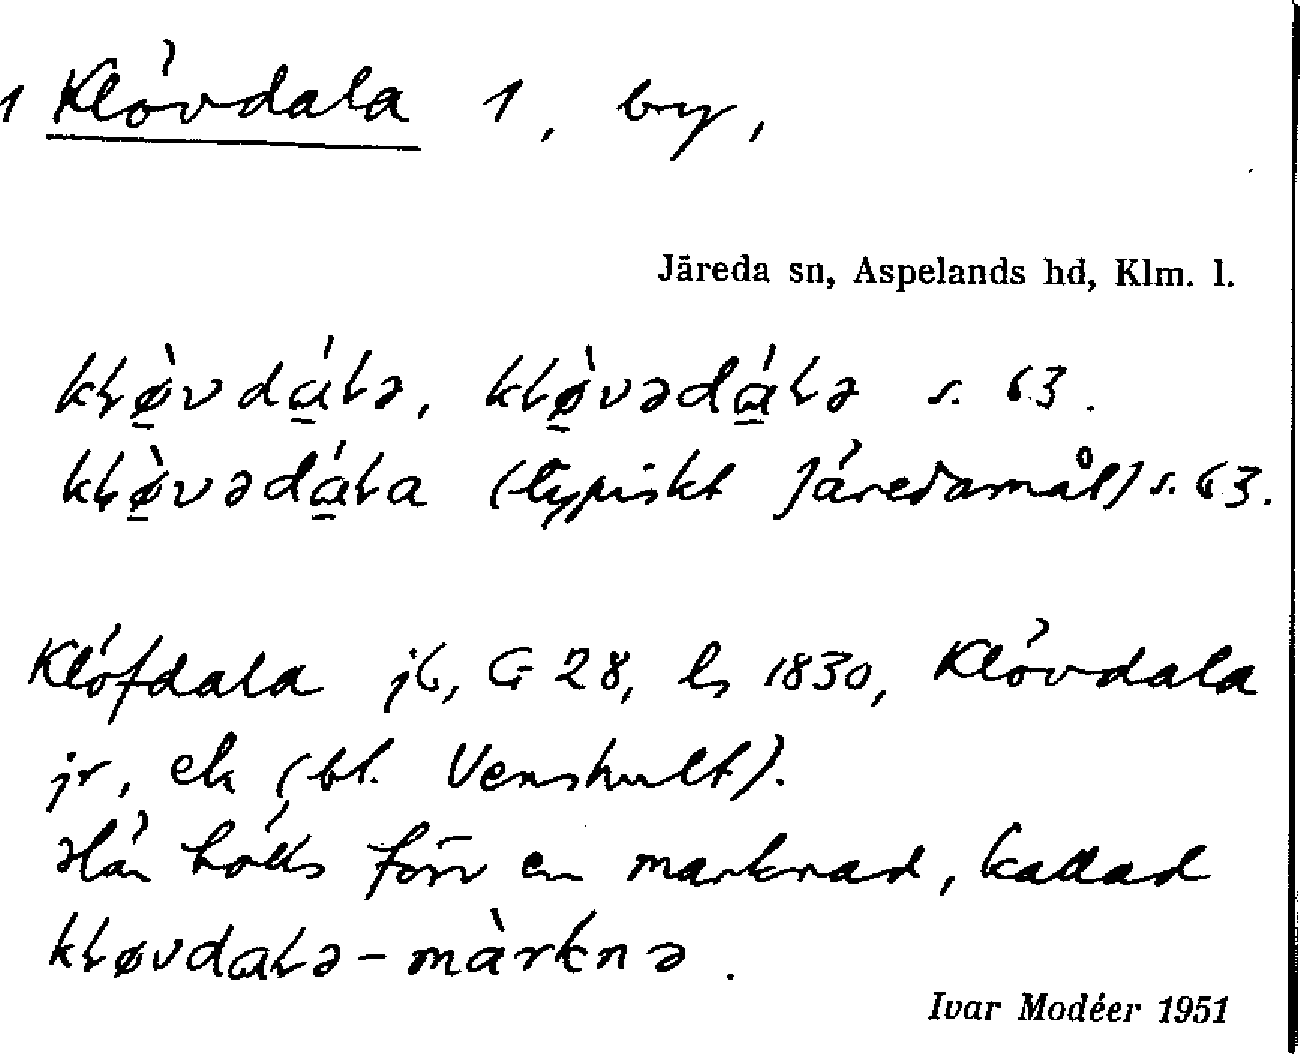 1 Klövdala 1, by,
Järeda sn, Aspelands hd, Klm. l.
kḷø̠̀vdá̠ḷə, kḷø̠̀vədá̠ḷə s. 63.
kḷø̠̀vədá̠ḷa (typiskt Järedamål) s. 63.
Klöfdala jb, G 28, ls 1830, Klövdala
jr, ek (bl. Venshult).
Här hölls förr en marknad, kallad
kḷøvdaḷə-màrknə.
Ivar Modéer 1951